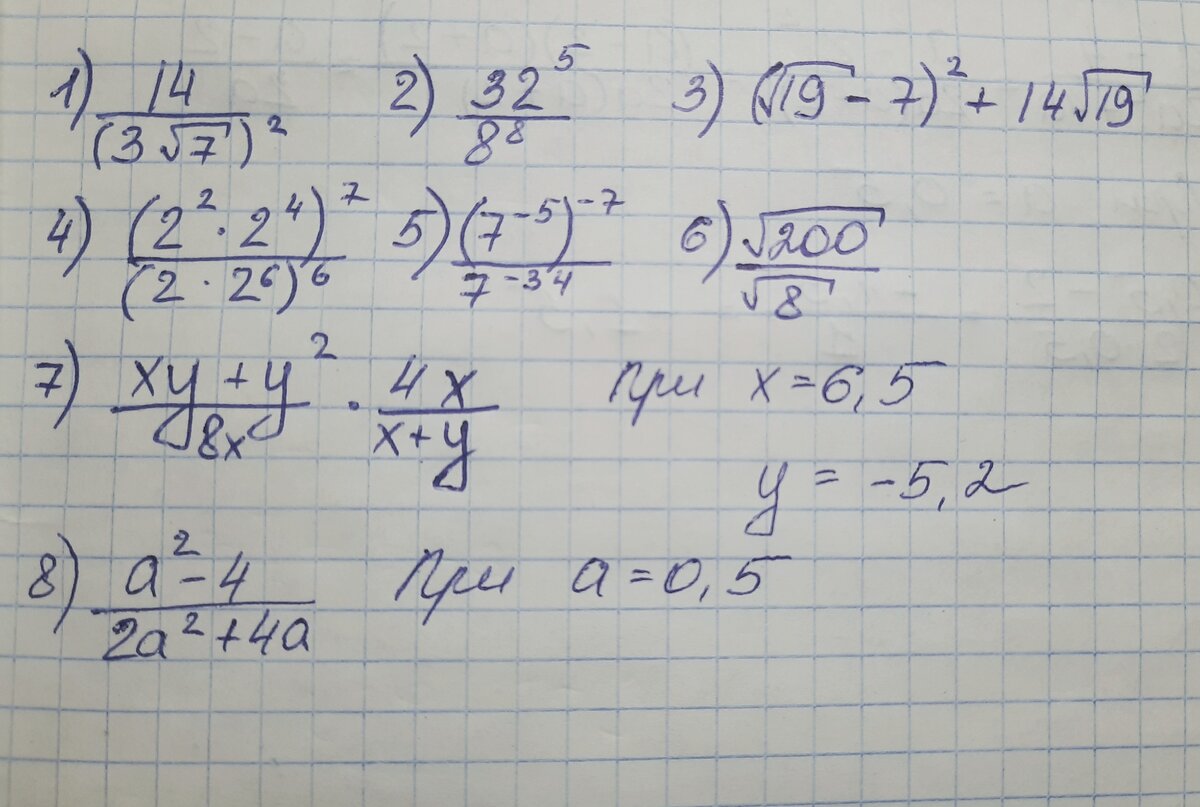 1) 14/(3√7)² 2) 32⁵/8⁸ 3) (√19 - 7)² + 14√19
4) (2² · 2⁴)⁷/(2 · 2⁶)⁶ 5) (7⁻⁵)⁻⁷/7⁻³⁴ 6) √200/√8
7) (xy + y²)/8x · 4x/(x+y) При x = 6,5
y = -5,2
8) (a² - 4)/(2a² + 4a) При a = 0,5